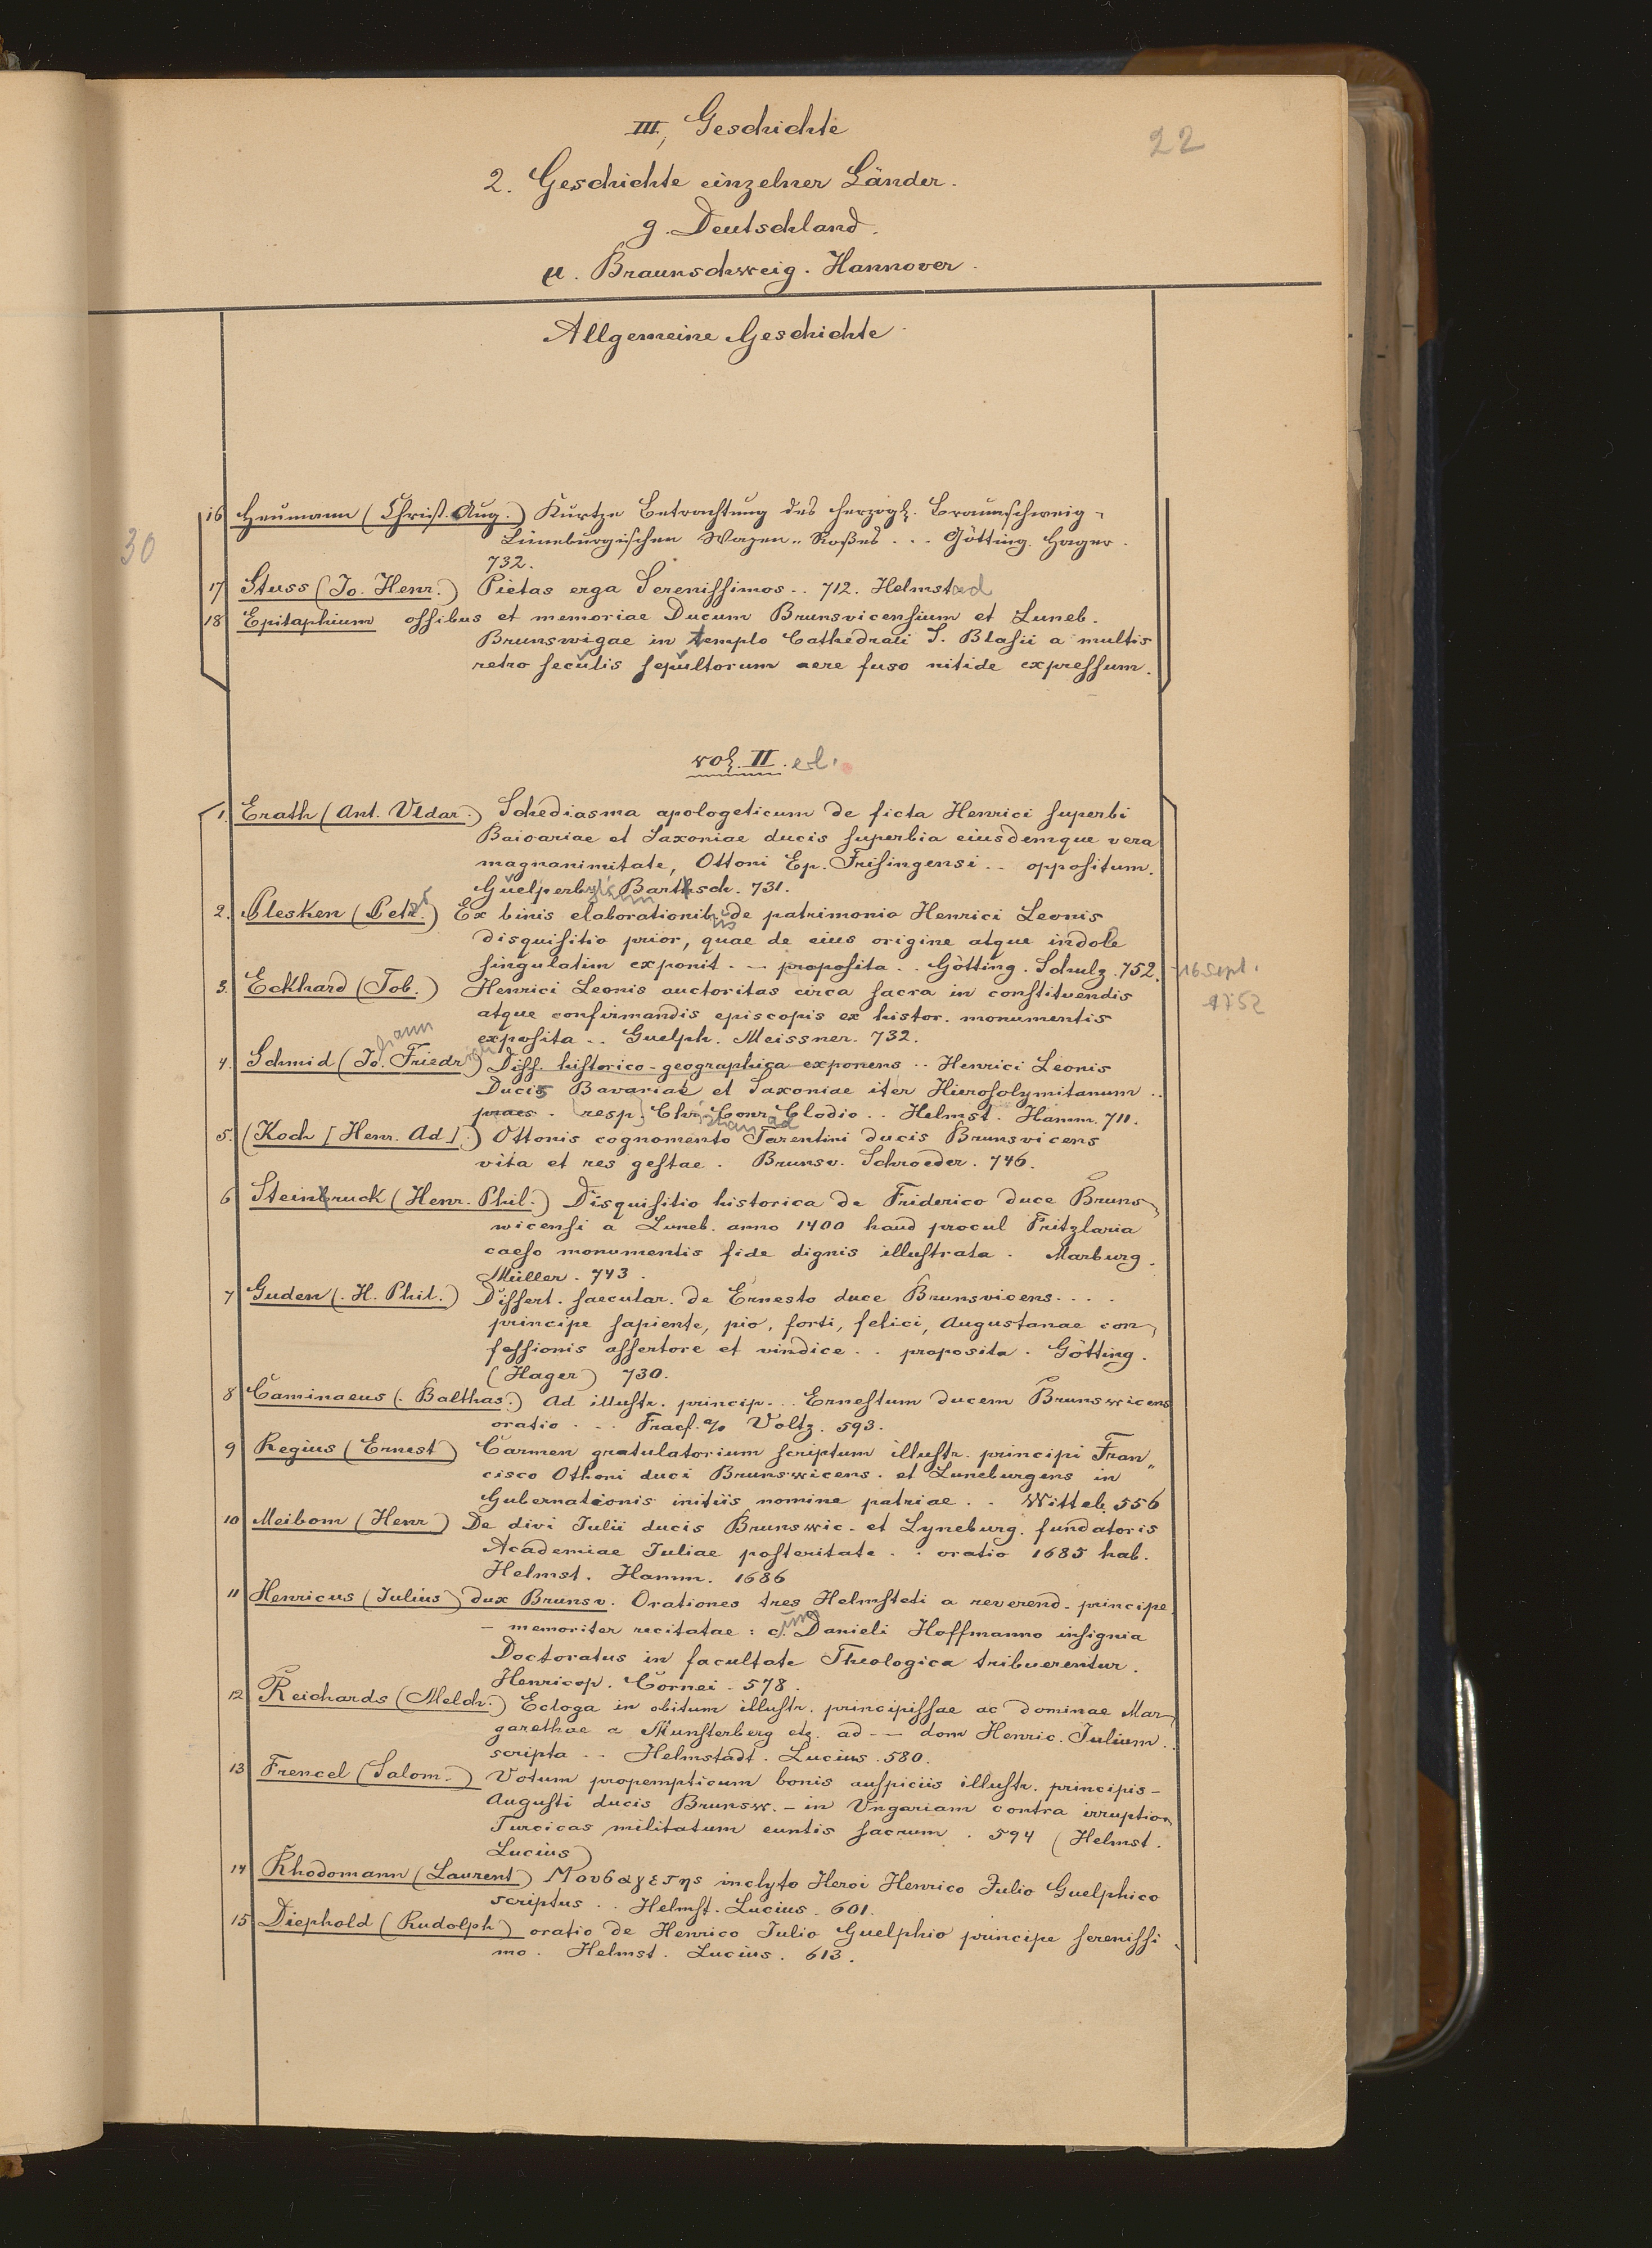 III, Geschichte
22
2. Geschichte einzelner Länder.
g. Deutschland.
α. Braunschweig. Hannover.
Allgemeine Geschichte
30
16 Heumann (Christ. Aug.) Kurtze Betrachtung des herzogl. Braunschweig-
Lüneburgischen Wapen-Roßes ... Götting. Hager.
732.
17 Stuss (Jo. Henr.) Pietas erga Serenissimos .. 712. Helmstad
18 Epitaphium ossibus et memoriae Ducum Brunsvicensium et Luneb.
Brunswigae in templo Cathedrali S. Blasii a multis
retro seculis sepultorum aere fuso nitide expressum.
vol. II. el.
1. Erath (Ant. Uldar.) Schediasma apologeticum de ficta Henrici superbi
Baioariae et Saxoniae ducis superbia eiusdemque vera
magnanimitate, Ottoni Ep. Frisingensi .. oppositum.
Guelperb. Bartsch. 731.
2. Plesken (Petr.) Ex binis elaborationibus de patrimonio Henrici Leonis
disquisitio prior, quae de eius origine atque indole
singulatim exponit. – proposita .. Götting. Schulz. 752. 16 Sept.
1752
3. Eckhard (Tob.) Henrici Leonis auctoritas circa sacra in constituendis
atque confirmandis episcopis ex histor. monumentis
exposita .. Guelph. Meissner. 732.
4. Schmid (Johann Friedrich) Diss. historico-geographica exponens .. Henrici Leonis
Ducis Bavariae et Saxoniae iter Hierosolymitanum ..
praes. [resp.] Christian Conrad Clodio .. Helmst. Hamm. 711.
5. (Koch [Henr. Ad].) Ottonis cognomento Tarentini ducis Brunsvicens
vita et res gestae. Brunsv. Schroeder. 746.
6 Steinbruck (Henr. Phil.) Disquisitio historica de Friderico duce Bruns-
wicensi a Luneb. anno 1400 haud procul Fritzlaria
caeso monumentis fide dignis illustrata. Marburg.
Müller. 743.
7 Guden (. H. Phil.) Dissert. saecular. de Ernesto duce Brunsvicens....
principe sapiente, pio, forti, felici, Augustanae con-
fessionis assertore et vindice .. proposita. Götting.
(Hager) 730.
8 Caminaeus (. Balthas.) Ad illustr. princip... Ernestum ducem Brunswicens
oratio ... Fracf. a/o Voltz. 593.
9 Regius (Ernest) Carmen gratulatorium scriptum illustr. principi Fran„
cisco Othoni duci Brunswicens. et Luneburgens in
Gubernationis initiis nomine patriae .. Witteb. 556
10 Meibom (Henr) De divi Julii ducis Brunswic. et Lyneburg. fundatoris
Academiae Juliae posteritate .. oratio 1685 hab.
Helmst. Hamm. 1686
11 Henricus (Julius) dux Brunsv. Orationes tres Helmsteti a reverend. principe.
– memoriter recitatae: c. Danieli Hoffmanno insignia
Doctoratus in facultate Theologica tribuerentur.
Henricop. Cornei. 578.
12 Reichards (Melch.) Ecloga in obitum illustr. principissae ac dominae Mar-
garethae a Munsterberg etz. ad –– dom Henric. Julium ..
scripta .. Helmstadt. Lucius. 580.
13 Frencel (Salom.) Votum propempticum bonis auspiciis illustr. principis –
Augusti ducis Brunsw. – in Ungariam contra irruption
Turcicas militatum euntis sacrum. 594 (Helmst.
Lucius)
14 Rhodomann (Laurent) Μουσαγετης inclyto Heroi Henrico Julio Guelphico
scriptus .. Helmst. Lucius. 601.
15 Diephold (Rudolph) oratio de Henrico Julio Guelphio principe serenissi-
mo. Helmst. Lucius. 613.